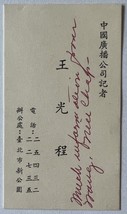 中國廣播公司記者
王光程
電話：二五四三二
二二七三五
辦公處：臺北市新公園
Much information from